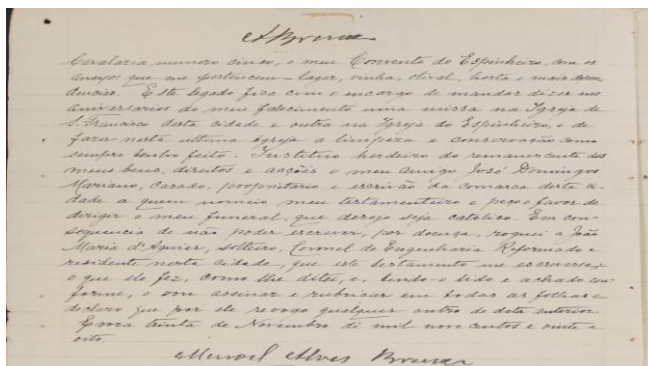 ABranco
Cavalaria numero cinco, o meu Convento do Espinheiro, com os
anexos que me pertencem – lagar, vinha, olival, horta e mais
Este legado fica com o encargo de mandar dizer nos
aniversarios do meu falecimento uma missa na Igreja de
S. Francisco desta cidade e outra na Igreja do Espinheiro, e de
fazer nesta ultima egreja a limpeza e conservação como
sempre tenho feito. Instituo herdeiro do remanescente dos
meus bens, direitos e acções o meu amigo José Domingos
Mariano, casado, proprietario e escrivão da comarca desta ci-
dade a quem nomeio meu testamenteiro e peço o favor de
dirigir o meu funeral, que desejo seja catolico. Em con-
sequencia de não poder escrever, por doença, roguei a João
Maria d'Aguiar, solteiro, Coronel de Engenharia Reformado e
residente nesta cidade, que este testamento me escrevesse,
o que ele fez, como lhe ditei, e, tendo-o lido e achado con-
forme, o vou assinar e rubricar em todas as folhas e
declaro que por ele revogo qualquer outro de data anterior.
Evora trinta de Novembro de mil nove centos e vinte e
oito.
Manoel Alves Branco